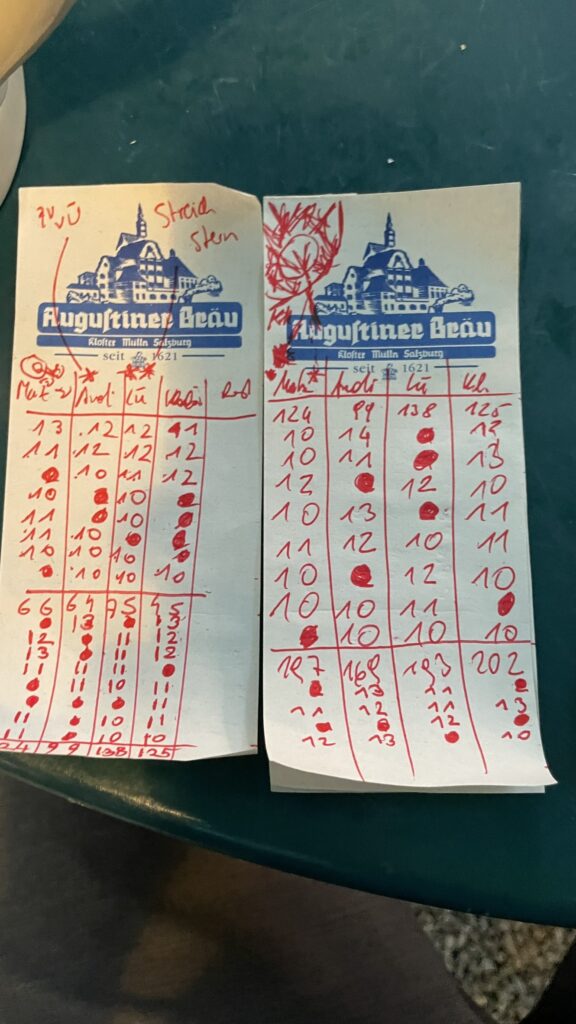 Streich
Stern
Augustiner Bräu
Kloster Mülln Salzburg
seit 1621
13 12 12 11
11 12 12 12
10 11 12
10 10
11 10
11 10
10 10 10
10 10 10
66 64 75 45
13 13
12 11 12
13 11 11 12
11 11 11
11 11 10 11
11 11
11 10 11
11 10 10
24 99 138 125
Augustiner Bräu
Kloster Mülln Salzburg
seit 1621
Andi
124 99 138 125
10 14 12
10 11 13
12 12 10
10 13 11
11 12 10 11
10 12 10
10 10 11
10 10 10
197 169 193 202
13 11
11 12 11 13
12
12 13 10